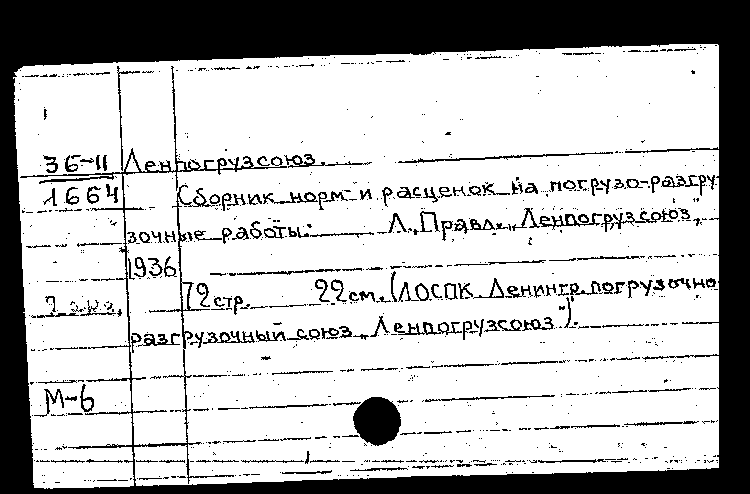 36-11 Ленпогрузсоюз.
1664 Сборник норм и расценок на погрузо-разгру
зочные работы. Л., Правл. „Ленпогрузсоюз",
1936
2 экз. 72 стр. 22 см. (ЛОСПК. Ленингр. погрузочно
разгрузочный союз „Ленпогрузсоюз").
М-6